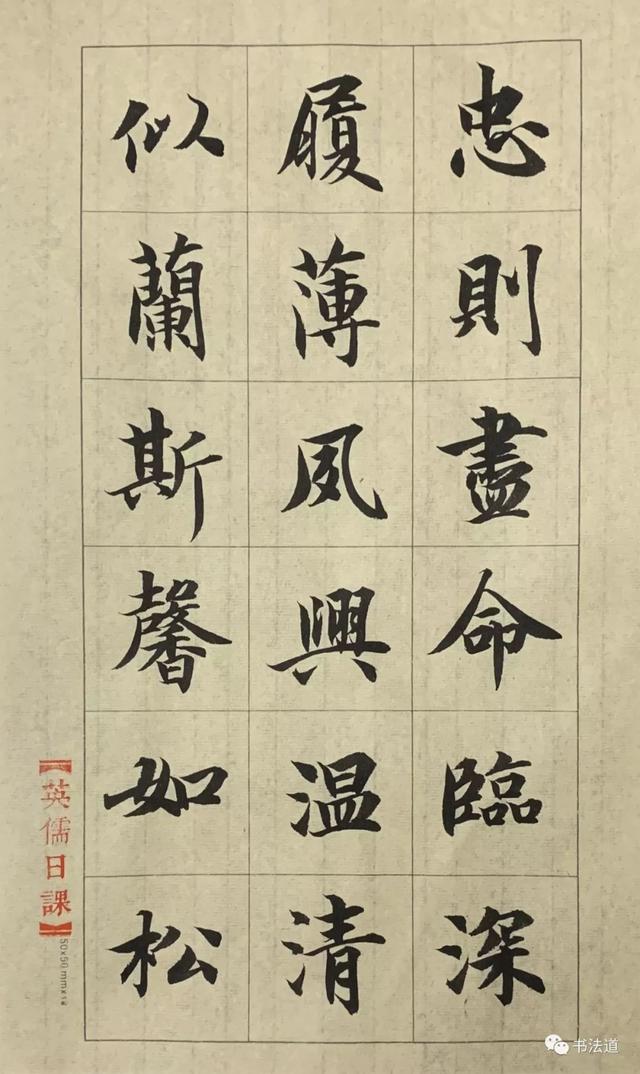 忠則盡命臨深
履薄夙興温清
似蘭斯馨如松
【英儒日課】
50×50mm×18
书法道